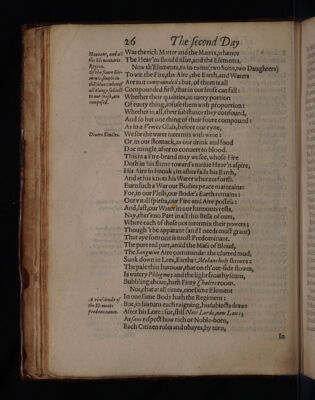 26 The second Day
Moouer, and all
the Elementarie
Region.
Was the rich Mater and the Matrix, whence
The Heav'ns should issue, and the Elements.
Now th' Elements, twins-twins (two Sons, two Daughters)
To wit, the Fire, the Aire, the Earth, and Waters
Are not compounded: but, of them is all
Compounded first, that in our sense can fall:
Whether their qualities, in euery portion
Of euery thing, infuse them with proportion:
Whether in all, their substance they confound,
And so but one thing of their foure compound:
As in a Venice Glass, before our eyne,
Diuers Similes.
We see the water intermix with wine:
Or, in our stomack, as our drink and food
Doe mingle, after to conuert to blood.
This in a Fire-brand may we see, whose Fire
Doth in his flame toward's natiue Heav'n aspire,
His Aire in smoak; in ashes falls his Earth,
And at his knots his Water wheezes forth.
Euen such a War our Bodies peace maintains:
For, in our Flesh, our Bodie's Earth remains:
Our vitall spirits, our Fire and Aire possess:
And, last, our Water in our humours rests.
Nay, ther's no Part in all this Bulk of ours,
Where each of these not intermix their powers;
Though 't be apparant (and I needs must grant)
That aye som one is most Predominant.
The pure red part, amid the Mass of Bloud,
The Sanguine Aire commands: the clutted mud,
Sunk down in Lees, Earths Melancholy showes:
The pale thin humour, that on th' out-side flowes,
Is watery Phlegme: and the light froathy scum,
Bubbling aboue, hath Fiery Cholers room.
A vicissitude of
the Elements
predominance.
Not, that at all times, one same Element
In one same Body hath the Regiment:
But, in his turn each raigning, his subiects draws
After his Lore: for, still New Lords, new Laws;
As sans respect how rich or Noble-born,
Each Citizen rules and obayes, by turn,
In